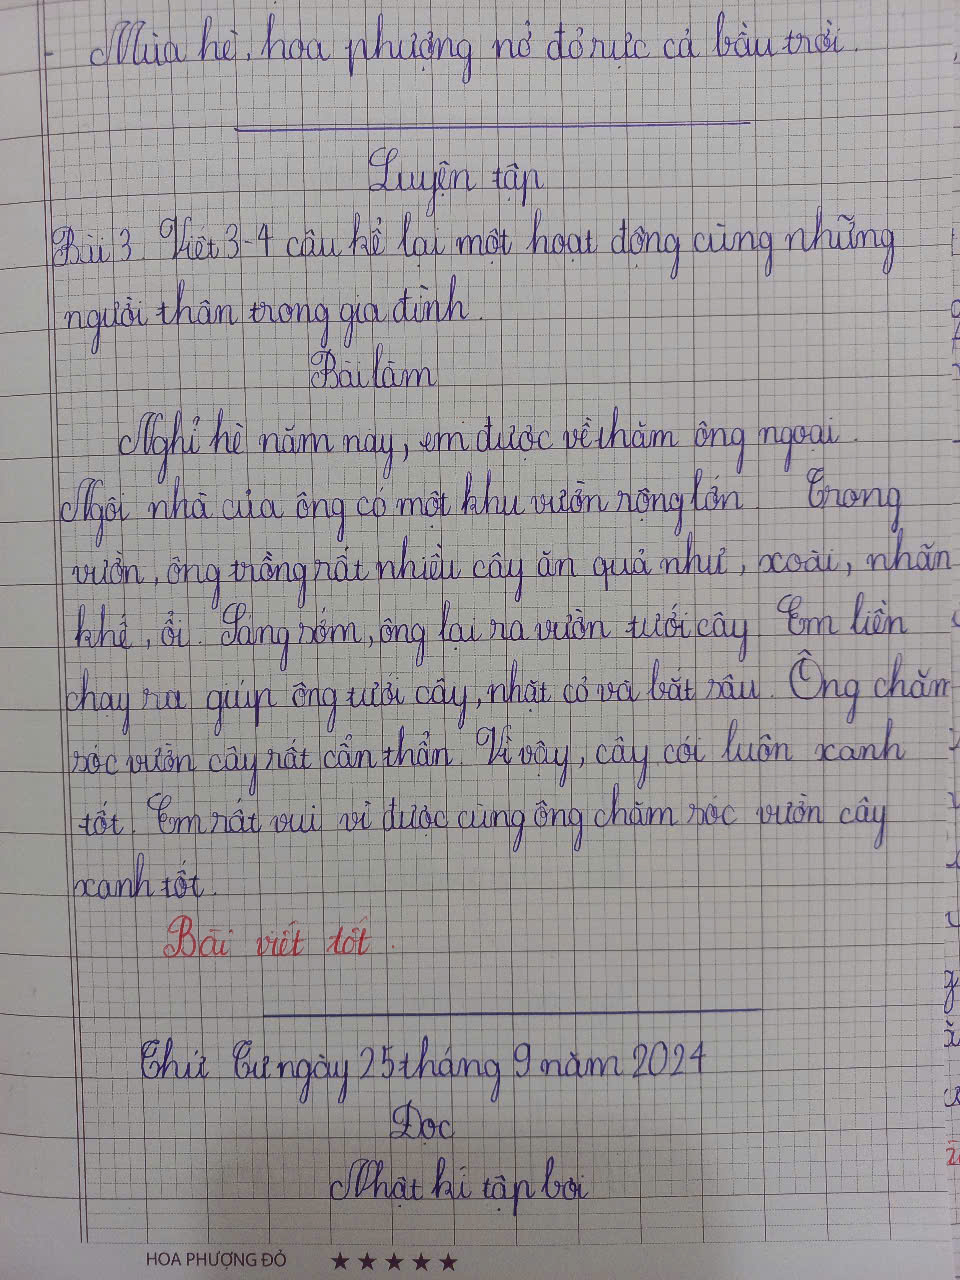 - Mùa hè, hoa phượng nở đỏ rực cả bầu trời.
Luyện tập
Bài 3. Viết 3-4 câu kể lại một hoạt động cùng những
người thân trong gia đình.
Bài làm
Nghỉ hè năm nay, em được về thăm ông ngoại.
Ngôi nhà của ông có một khu vườn rộng lớn. Trong
vườn, ông trồng rất nhiều cây ăn quả như, xoài, nhãn
khế, ổi. Sáng sớm, ông lại ra vườn tưới cây Em liền
chạy ra giúp ông tưới cây, nhặt cỏ và bắt sâu. Ông chăm
sóc vườn cây rất cẩn thẩn. Vì vậy, cây cối luôn xanh
tốt. Em rất vui vì được cùng ông chăm sóc vườn cây
xanh tốt.
Bài viết tốt.
Thứ Tư ngày 25 tháng 9 năm 2024
Đọc
Nhật kí tập bơi
HOA PHƯỢNG ĐỎ ★★★★★